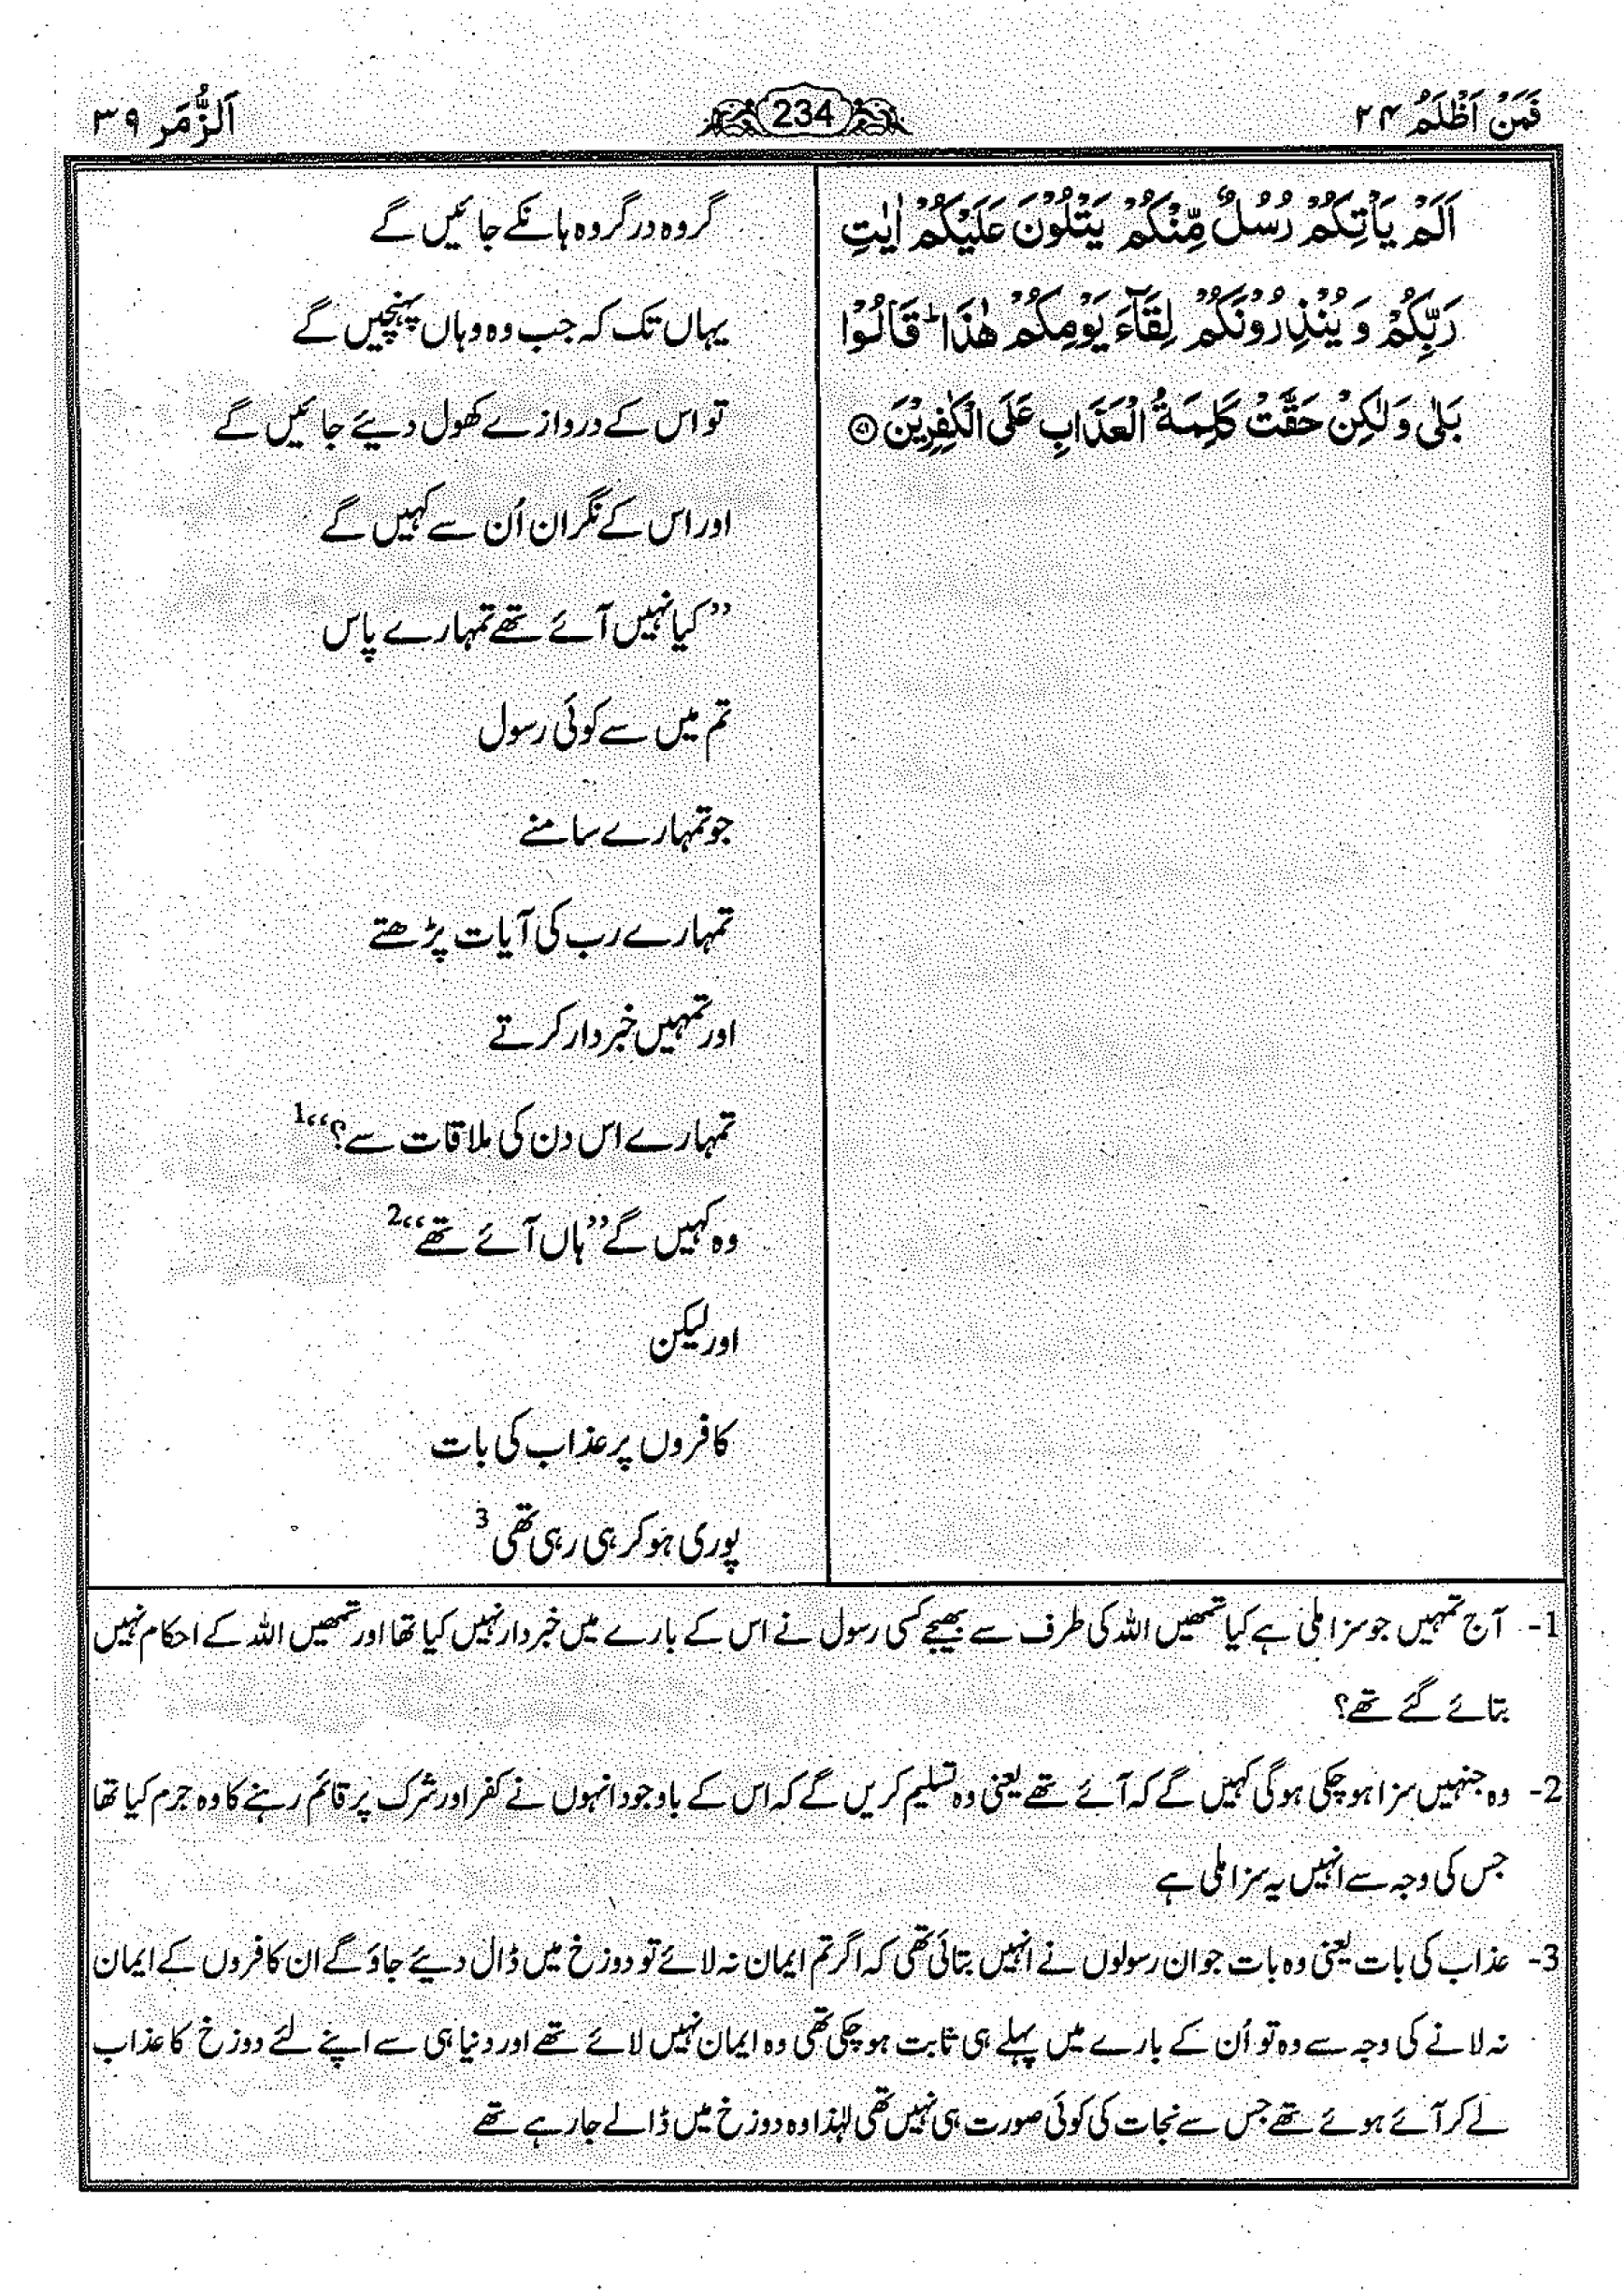 فَمَنْ اَظْلَمُ ۲۴
234
اَلزُّمَر ۳۹
اَلَمْ يَاْتِكُمْ رُسُلٌ مِّنْكُمْ يَتْلُوْنَ عَلَيْكُمْ اٰيٰتِ
رَبِّكُمْ وَ يُنْذِرُوْنَكُمْ لِقَآءَ يَوْمِكُمْ هٰذَا ؕ قَالُوْا
بَلٰى وَ لٰكِنْ حَقَّتْ كَلِمَةُ الْعَذَابِ عَلَى الْكٰفِرِيْنَ ﴿۷۱﴾
گروہ در گروہ ہانکے جائیں گے
یہاں تک کہ جب وہ وہاں پہنچیں گے
تو اس کے دروازے کھول دیئے جائیں گے
اور اس کے نگران اُن سے کہیں گے
”کیا نہیں آئے تھے تمہارے پاس
تم میں سے کوئی رسول
جو تمہارے سامنے
تمہارے رب کی آیات پڑھتے
اور تمہیں خبردار کرتے
تمہارے اس دن کی ملاقات سے؟“1
وہ کہیں گے ”ہاں آئے تھے“2
اور لیکن
کافروں پر عذاب کی بات
پوری ہو کر ہی رہی تھی 3
1- آج تمہیں جو سزا ملی ہے کیا تمھیں اللہ کی طرف سے بھیجے کسی رسول نے اس کے بارے میں خبردار نہیں کیا تھا اور تمھیں اللہ کے احکام نہیں
بتائے گئے تھے؟
2- وہ جنہیں سزا ہو چکی ہوگی کہیں گے کہ آئے تھے یعنی وہ تسلیم کریں گے کہ اس کے باوجود انہوں نے کفر اور شرک پر قائم رہنے کا وہ جرم کیا تھا
جس کی وجہ سے انہیں یہ سزا ملی ہے
3- عذاب کی بات یعنی وہ بات جو ان رسولوں نے انہیں بتائی تھی کہ اگر تم ایمان نہ لائے تو دوزخ میں ڈال دیئے جاؤ گے ان کافروں کے ایمان
نہ لانے کی وجہ سے وہ تو اُن کے بارے میں پہلے ہی ثابت ہو چکی تھی وہ ایمان نہیں لائے تھے اور دنیا ہی سے اپنے لئے دوزخ کا عذاب
لے کر آئے ہوئے تھے جس سے نجات کی کوئی صورت ہی نہیں تھی لہٰذا وہ دوزخ میں ڈالے جا رہے تھے